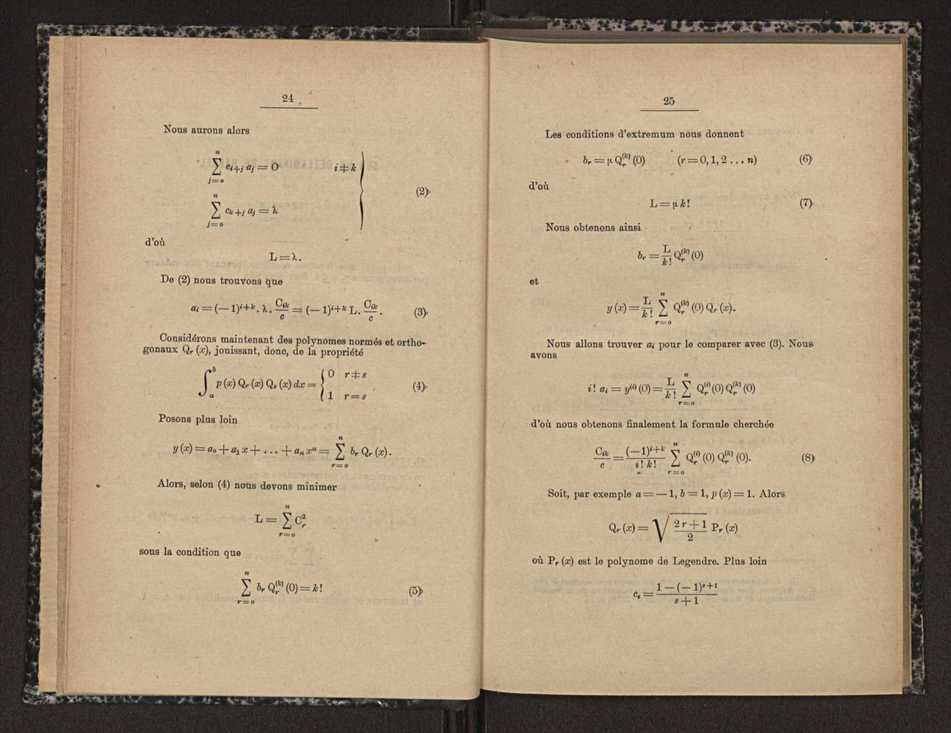 24
Nous aurons alors
n
∑ c_{i+j} a_j = 0 i ≠ k
j=o
n
∑ c_{k+j} a_j = λ
j=o
(2)
d'où
L = λ.
De (2) nous trouvons que
a_i = (— 1)^{i+k} . λ . C_{ik}/c = (— 1)^{i+k} L . C_{ik}/c . (3)
Considérons maintenant des polynomes normés et ortho-
gonaux Q_r (x), jouissant, donc, de la propriété
∫_a^b p (x) Q_r (x) Q_s (x) dx = { 0 r ≠ s
1 r = s (4)
Posons plus loin
y (x) = a_o + a_1 x + ... + a_n x^n = ∑_{r=o}^n b_r Q_r (x).
Alors, selon (4) nous devons minimer
L = ∑_{r=o}^n C_r^2
sous la condition que
∑_{r=o}^n b_r Q_r^{(k)} (0) = k! (5)
25
Les conditions d'extremum nous donnent
b_r = μ Q_r^{(k)} (0) (r = 0, 1, 2 ... n) (6)
d'où
L = μ k! (7)
Nous obtenons ainsi
b_r = L/k! Q_r^{(k)} (0)
et
y (x) = L/k! ∑_{r=o}^n Q_r^{(k)} (0) Q_r (x).
Nous allons trouver a_i pour le comparer avec (3). Nous
avons
i! a_i = y^{(i)} (0) = L/k! ∑_{r=o}^n Q_r^{(i)} (0) Q_r^{(k)} (0)
d'où nous obtenons finalement la formule cherchée
C_{ik}/c = (—1)^{i+k}/i! k! ∑_{r=o}^n Q_r^{(i)} (0) Q_r^{(k)} (0). (8)
Soit, par exemple a = — 1, b = 1, p (x) = 1. Alors
Q_r (x) = √(2r + 1/2) P_r (x)
où P_r (x) est le polynome de Legendre. Plus loin
c_s = 1 — (— 1)^{s+1}/s + 1